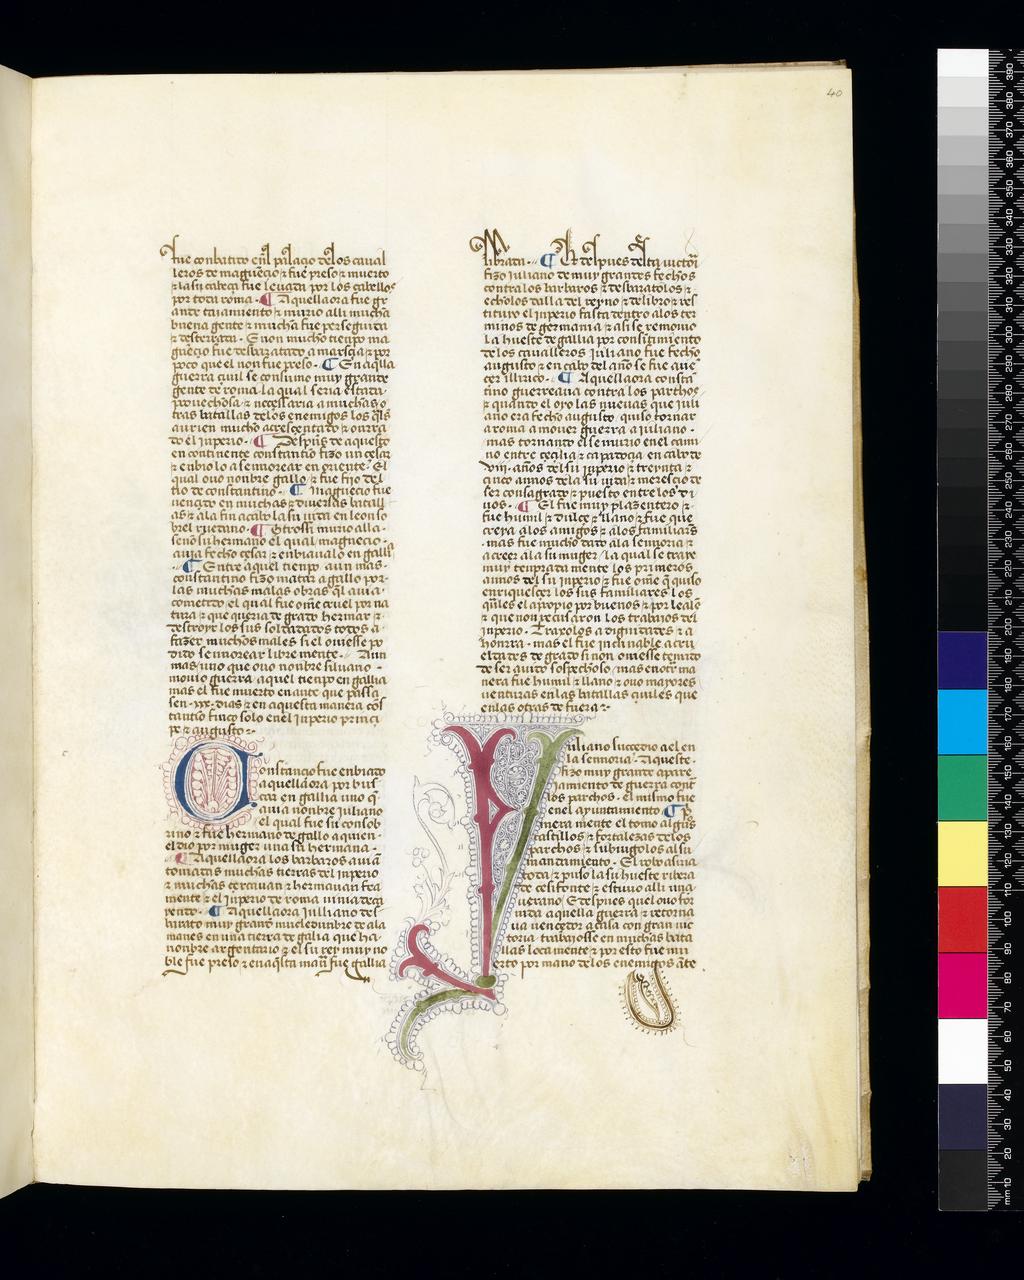 40
fue conbatido enl palaçio delos caual
leros de magneçio & fue preso & muerto
& la su cabeça fue leuada por los cabellos
por toda roma · ¶ Aquella ora fue gr
ande taiamiento & murio alli mucha
buena gente & mucha fue perseguida
& desterrada · E non mucho tienpo ma
gneçio fue desbaratado a marsçia & por
poco que el non fue preso · ¶ En aq̃lla
guerra çiuil se consumo muy grande
gente de roma la qual seria estada
prouechosa & neçessaria a muchas o
tras batallas delos enemigos los q̃ls
aurien mucho acresçentado & onrra
do el inperio · ¶ Despues de aquesto
en continente constantio fizo un çesar
& enbiolo a sennorear en oriente · El
qual ouo nonbre gallo & fue fijo del
tio de constantino · ¶ magneçio fue
vençido en muchas & diuersas batall
as & ala fin acabo la su vida en leon so
brel ruedano · ¶ Otrossi murio alla
seno su hermano el qual magneçio
auia fecho çesar & enbiaualo en gallia
¶ Entre aquel tienpo aun mas
constantino fizo matar a gallo por
las muchas malas obras q̃l auia
cometido el qual fue om̃e cruel por na
tura & que queria de grado hermar &
destroyr los sus soldadados todos a
fazer muchos males si el ouiesse po
dido sennorear libre mente · Aun
mas uno que ouo nonbre siluano
mouio guerra aquel tienpo en gallia
mas el fue muerto en ante que passa
sen · xx · dias & en aquesta manera cos
tantio finco solo enel inperio prinçi
pe & augusto
Constançio fue enbiado
aquella ora por bus
car en gallia uno q̃
auia nonbre iuliano
el qual fue su consob
rino & fue hermano de gallo a quien
el dio por muger una su hermana ·
¶ Aquella ora los barbaros auiã
tomadas muchas tierras del inperio
& muchas çercauan & hermauan fea
mente & el inperio de roma uinia deca
yendo · ¶ Aquella ora iulliano des
barato muy grand muchedunbre de ala
manes en una tierra de galia que ha
nonbre argentario & el su rey muy no
ble fue preso & en aq̃lla man̄ fue gallia
librada · ¶ E despues desta victori
fizo iuliano de muy grandes fechos
contra los barbaros & desbaratolos &
echolos dalla del reyno & delibro & res
tituyo el inperio fasta dentro alos ter
minos de germania & assi se remouio
la hueste de gallia por consintimiento
de los caualleros iuliano fue fecho
augusto & en cabo del año se fue uen
çer illirico · ¶ Aquella ora consta
tino guerreaua contra los parthos
& quando el oyo las nueuas que iuli
ano era fecho augusto quiso tornar
a roma a mouer guerra a iuliano ·
mas tornando el se murio enel cami
no entre çeçilia & capadoçia en cabo de
viii · años del su inperio & treynta &
çinco annos dela su vida & meresçio de
ser consagrado & puesto entre los di
uos · ¶ El fue muy plazentero &
fue humil & dulçe & llano & fue que
creya alos amigos & alos familiares
mas fue mucho dado ala sennoria &
a creer ala su muger / la qual se traxe
muy tenprada mente los primeros
annos del su inperio & fue om̃e q̃ quiso
enriquesçer los sus familiares los
quales el apropio por buenos & por leales
& que non reçusaron los trabajos del
inperio · Traxolos a dignidades & a
honrra · mas el fue inclinable a cru
eldades de grado si non ouiesse temido
de ser auido sospechoso / mas en otr ma
nera fue humil & llano & ouo mayores
uenturas en las batallas çiuiles que
en las otras de fuera
Iuliano suçedio a el en
la sennoria · Aqueste
fizo muy grande apare
iamiento de guerra contr
los parthos · el mismo fue
enel ayuntamiento · ¶ p
mera mente el tomo algũs
castillos & fortalezas delos
parthos & subiugolos al su
mandamiento · El robo asiria
toda & puso la su hueste ribera
de cesifonte & estuuo alli una
uerano / E despues quel ouo for
nida aquella guerra & retorna
ua uençedor a casa con gran uic
toria · trabajosse en muchas bata
llas loca mente & por esto fue mu
erto por mano delos enemigos ãte